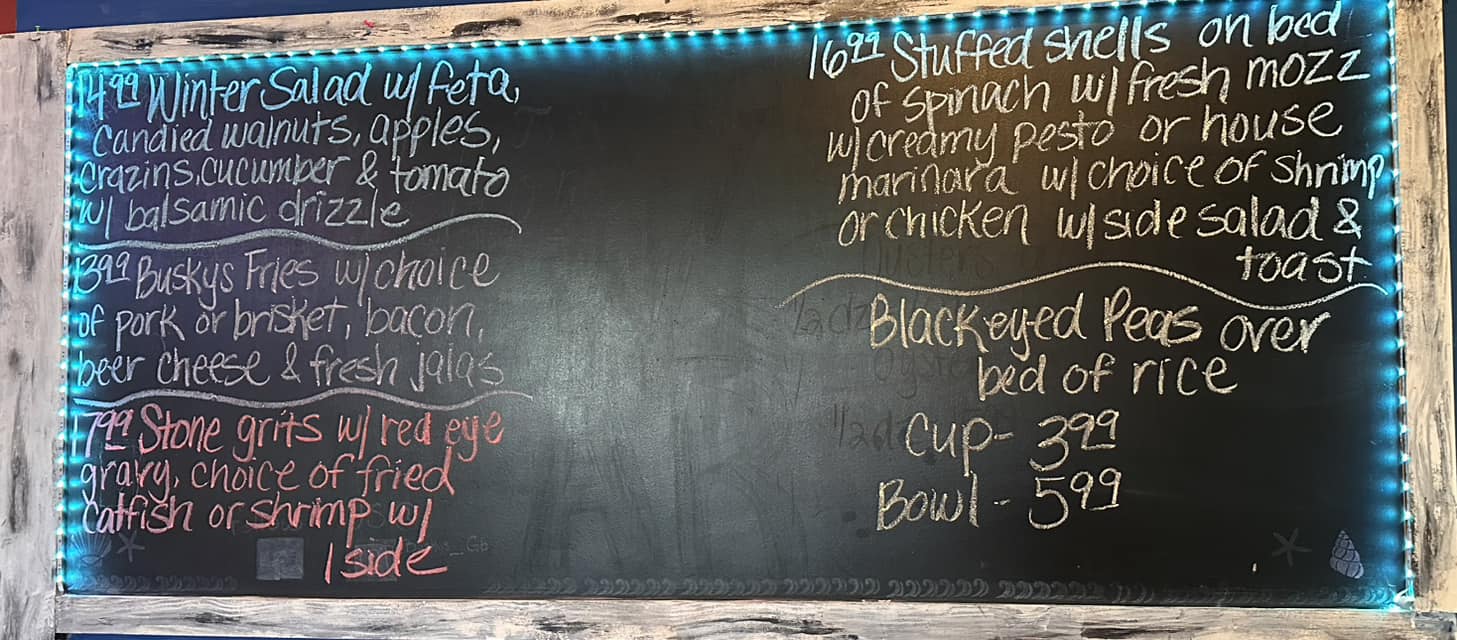 14 99 Winter Salad w/ feta,
candied walnuts, apples,
crazins, cucumber & tomato
w/ balsamic drizzle
13 99 Buskys Fries w/ choice
of pork or brisket, bacon,
beer cheese & fresh jalas
17 99 Stone grits w/ red eye
gravy, choice of fried
catfish or shrimp w/
1 side
16 99 Stuffed shells on bed
of spinach w/ fresh mozz
w/ creamy pesto or house
marinara w/ choice of shrimp
or chicken w/ side salad &
toast
Blackeyed Peas over
bed of rice
Cup- 3 99
Bowl - 5 99